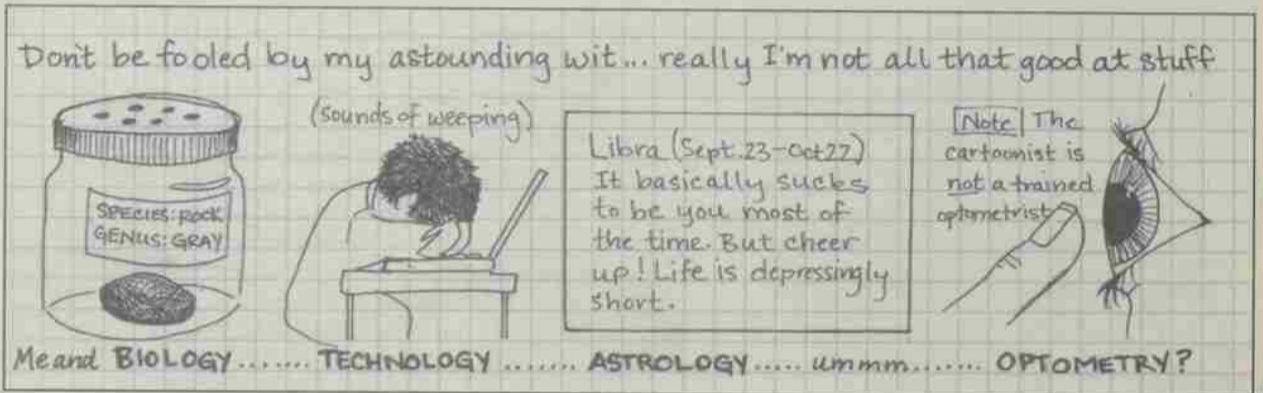 Don't be fooled by my astounding wit... really I'm not all that good at stuff
SPECIES: ROCK
GENUS: GRAY
(sounds of weeping)
Libra (Sept.23-Oct22)
It basically sucks
to be you most of
the time. But cheer
up! Life is depressingly
short.
Note The
cartoonist is
not a trained
optometrist
Me and BIOLOGY....... TECHNOLOGY ....... ASTROLOGY..... ummm....... OPTOMETRY?